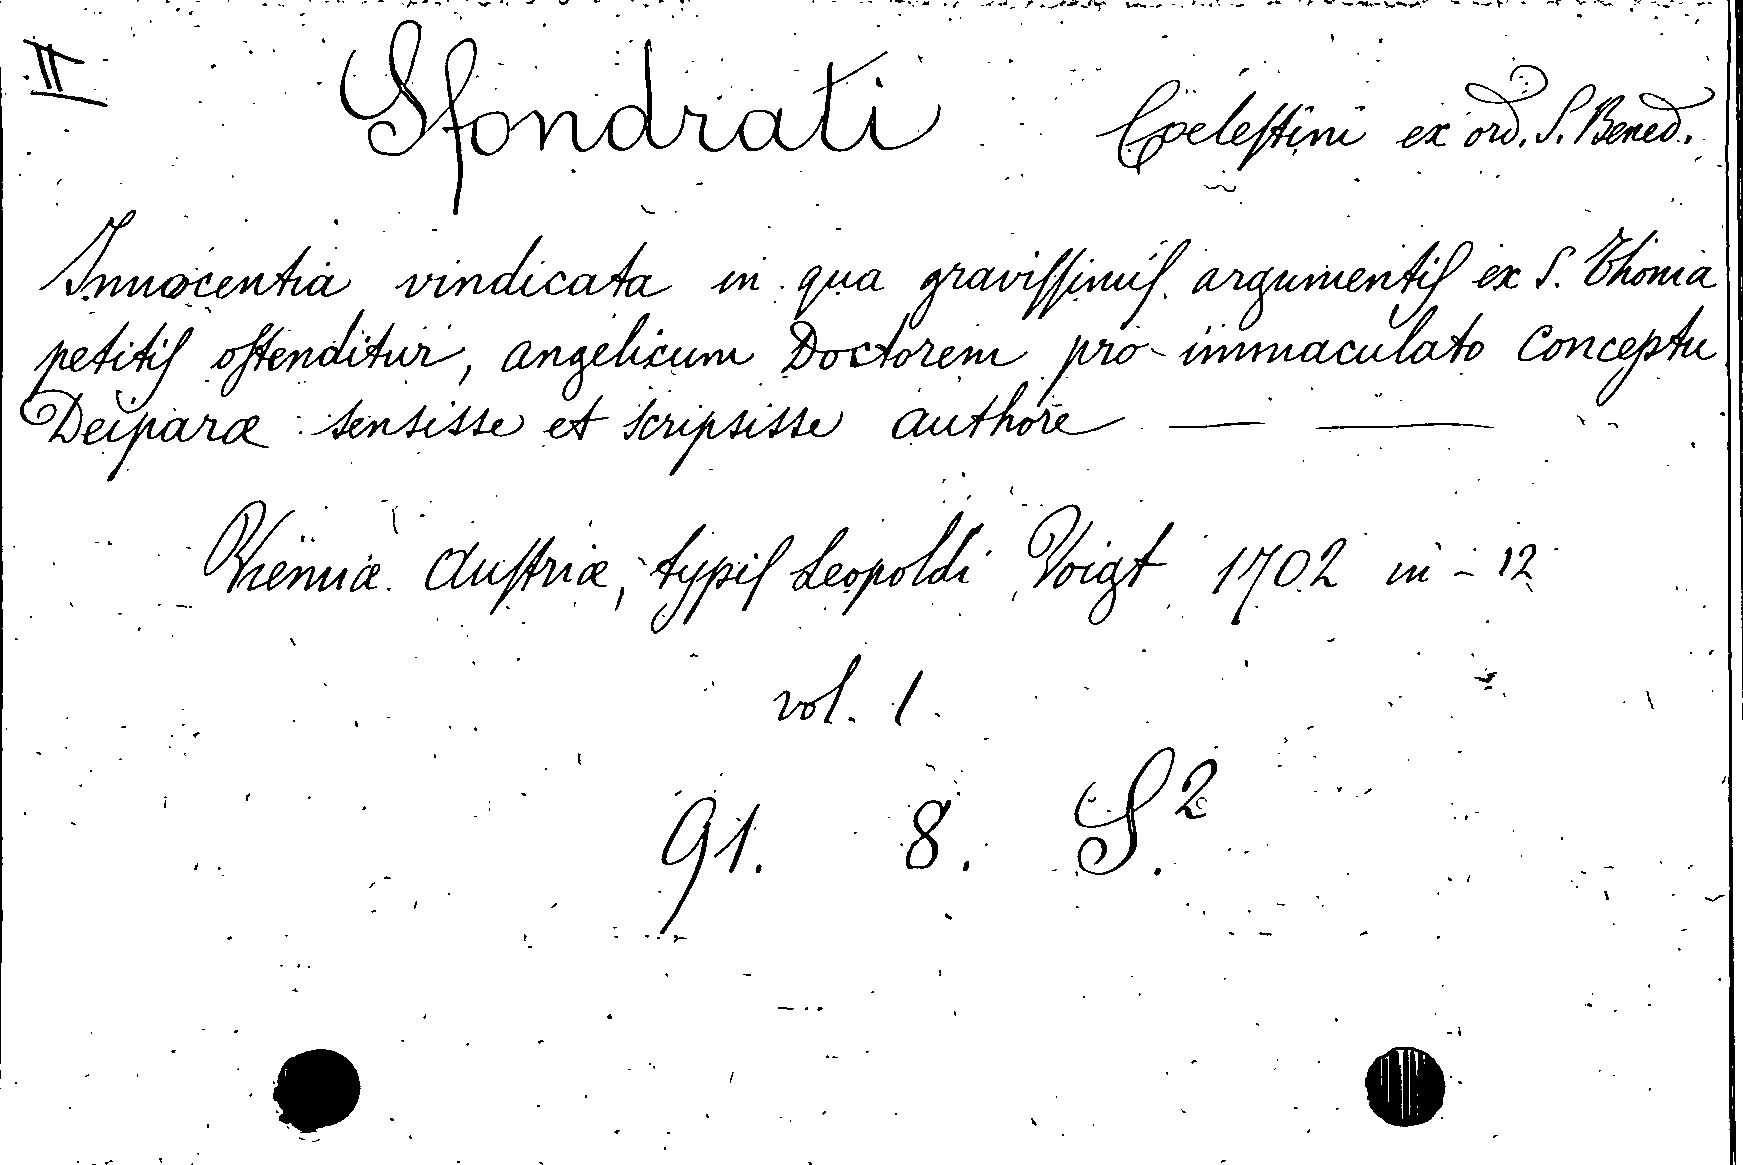 II
Sfondrati Coelestini ex ord. S. Bened.
Innocentia vindicata in qua gravissimis argumentis ex S. Thoma
petitis ostenditur, angelicum Doctorem pro immaculato Conceptu
Deiparæ sensisse et scripsisse authore — —
Viennæ Austriæ, typis Leopoldi Voigt 1702 in-12
vol. 1.
91. 8. S.²